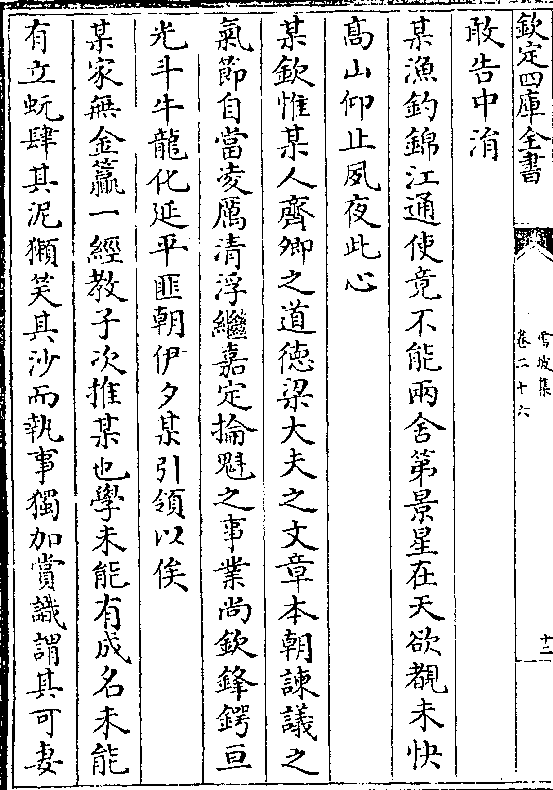 欽定四庫全書
雪坡集
卷二十六
十二
敢告中涓
某漁釣錦江通使竟不能兩舍第景星在天欲覩未快
髙山仰止夙夜此心
某欽惟某人齊卿之道德梁大夫之文章本朝諫議之
氣節自當凌厲清浮繼嘉定掄魁之事業尚欽鋒鍔亘
光斗牛龍化延平匪朝伊夕某引領以俟
某家無金籝一經教子次推某也學未能有成名未能
有立蚖肆其泥獺笑其沙而執事獨加賞識謂其可妻